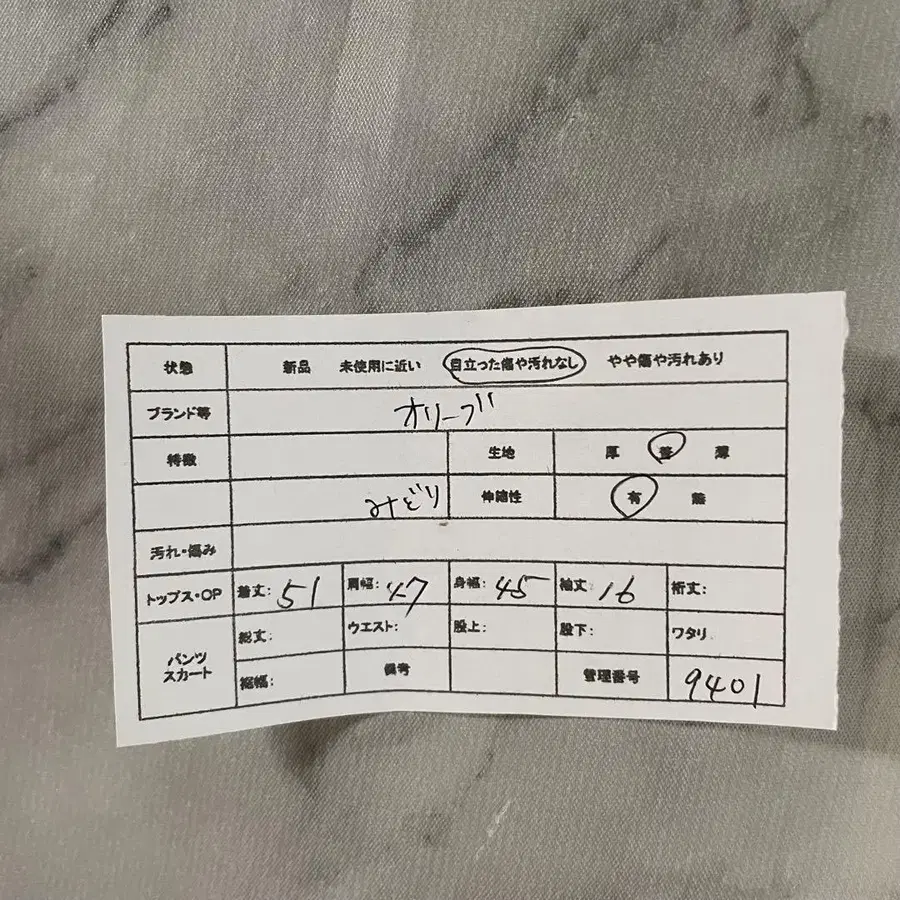 状態 新品 未使用に近い 目立った傷や汚れなし やや傷や汚れあり
ブランド等 オリーブ
特徴 生地 厚 普 薄
みどり 伸縮性 有 無
汚れ・傷み
トップス・OP 着丈: 51 肩幅: 47 身幅: 45 袖丈 16 裄丈:
パンツ スカート 総丈: ウエスト: 股上: 股下: ワタリ
裾幅: 備考 管理番号 9401